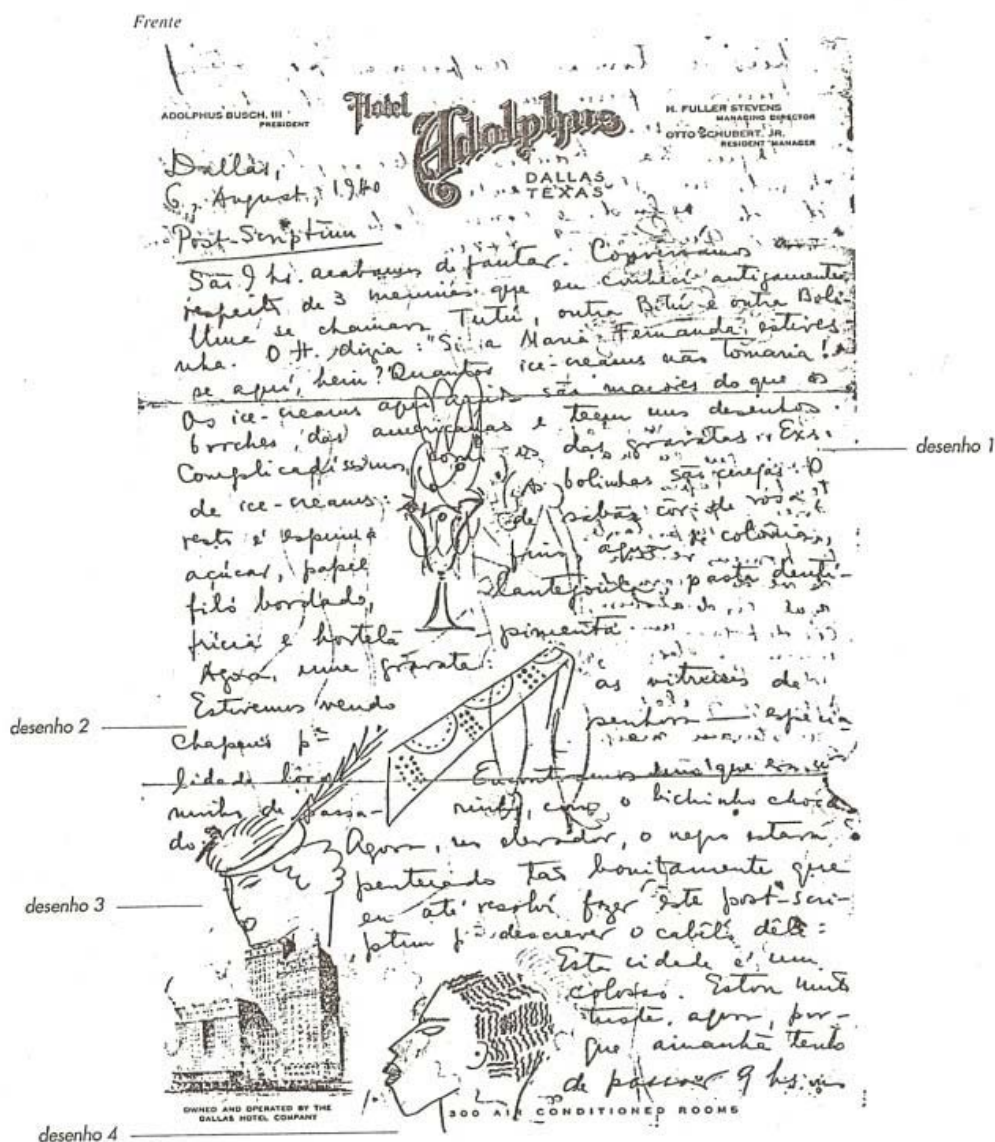 Frente
ADOLPHUS BUSCH, III
PRESIDENT
Hotel
Adolphus
DALLAS
TEXAS
H. FULLER STEVENS
MANAGING DIRECTOR
OTTO SCHUBERT, JR.
RESIDENT MANAGER
Dallas,
6, August, 1940
Post-Scriptum
São 9 hs. acabamos de jantar. Conversámos
respeito de 3 meninas que eu conheci antigamente.
Uma se chamava Tutú, outra Bitú e outra Boli-
nha. O H. dizia: "Si a Maria Fernanda estives-
se aqui, hein? Quantos ice-creams não tomaria!
Os ice-creams aqui são maiores do que os
broches das americanas e teem uns desenhos
complicadissimos, como os das gravatas. Exs.
de ice-creams: As bolinhas são cerejas. O
resto é espuma de sabão côr de rosa,
açúcar, papel fino, colonia,
filó bordado, pasta denti-
fricia e hortelã-pimenta.
Agora, uma gravata:
Estivemos vendo as vitreis de
chapeus pª senhora — especia-
lidade Encontramos que era
ninho de passa-rinho, com o bichinho choca
do:
Agora, no elevador, o negro estava
penteado tão bonitamente que
eu até resolvi fazer este post-scri-
ptum pª descrever o cabêlo dêle:
Esta cidade é um
colosso. Estou muito
triste, agora, por-
que amanhã tenho
de passar 9 hs.
OWNED AND OPERATED BY THE
DALLAS HOTEL COMPANY
300 AIR CONDITIONED ROOMS
desenho 1
desenho 2
desenho 3
desenho 4